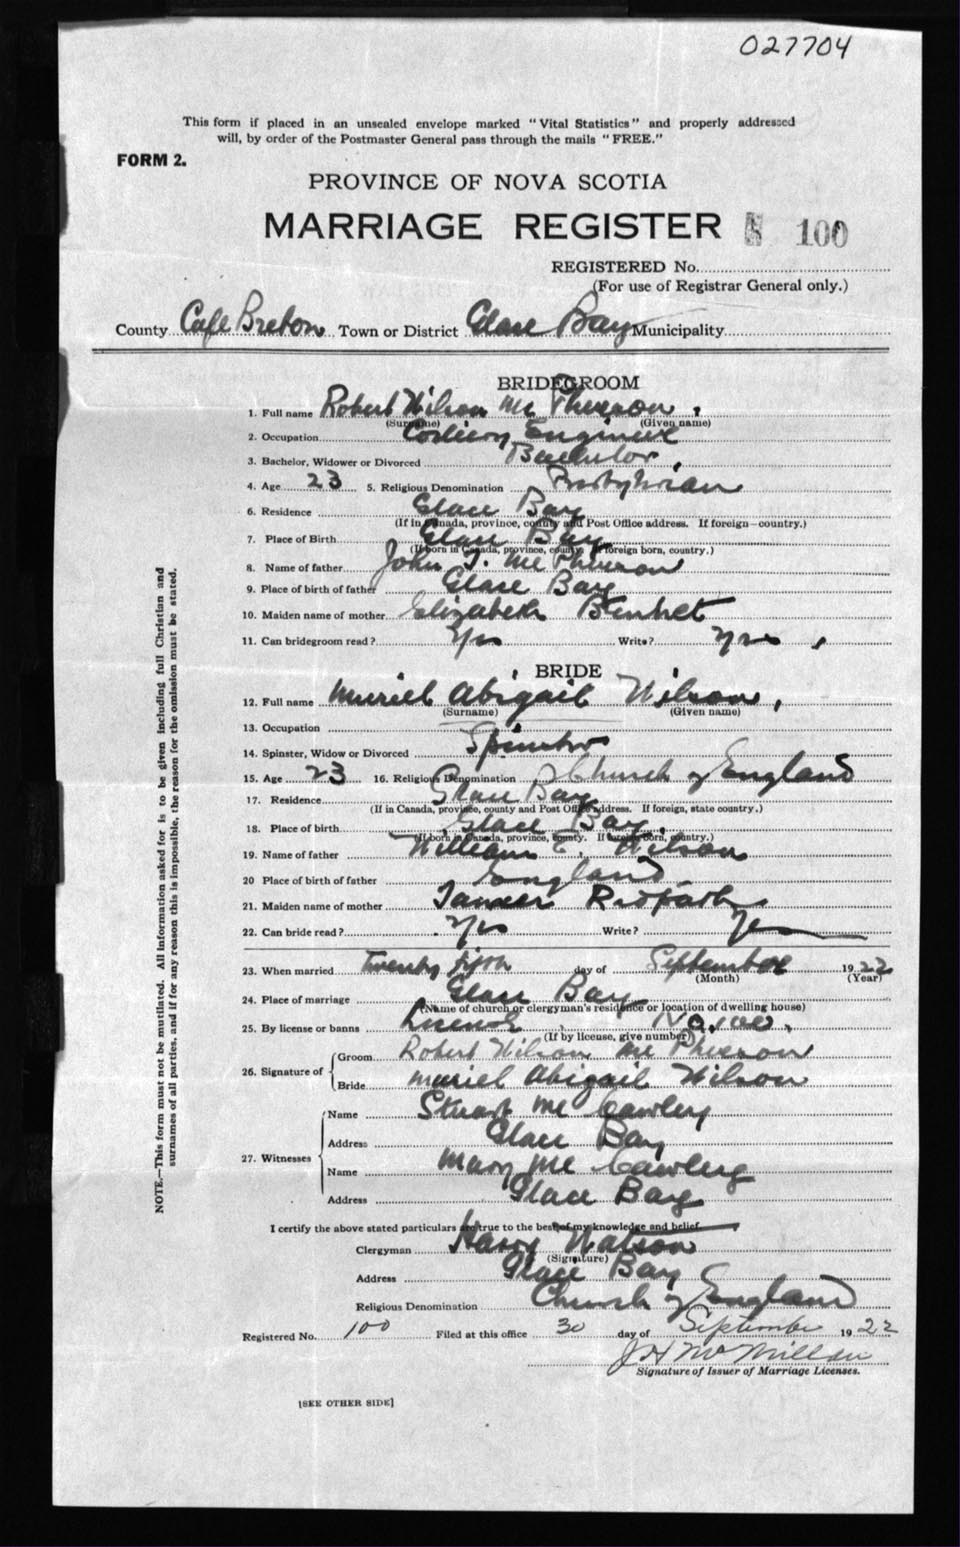 027704
This form if placed in an unsealed envelope marked "Vital Statistics" and properly addressed
will, by order of the Postmaster General pass through the mails "FREE."
FORM 2.
PROVINCE OF NOVA SCOTIA
MARRIAGE REGISTER 100
REGISTERED No.
(For use of Registrar General only.)
County Cape Breton Town or District Glace Bay Municipality
BRIDEGROOM
1. Full name Robert Wilson McPherson,
(Surname) (Given name)
2. Occupation Engineer
3. Bachelor, Widower or Divorced Bachelor,
4. Age 23 5. Religious Denomination Presbyterian
6. Residence Glace Bay
(If in Canada, province, county and Post Office address. If foreign—country.)
7. Place of Birth Glace Bay
(If born in Canada, province, county. If foreign born, country.)
8. Name of father John T. McPherson
9. Place of birth of father Glace Bay
10. Maiden name of mother Elizabeth
11. Can bridegroom read? Yes Write? Yes,
BRIDE
12. Full name Muriel Abigail Wilson,
(Surname) (Given name)
13. Occupation
14. Spinster, Widow or Divorced Spinster
15. Age 23 16. Religious Denomination Church of England
17. Residence Glace Bay
(If in Canada, province, county and Post Office address. If foreign, state country.)
18. Place of birth Glace Bay
(If born in Canada, province, county. If foreign born, country.)
19. Name of father William E. Wilson
20 Place of birth of father England
21. Maiden name of mother
22. Can bride read? Yes Write? Yes
23. When married Twenty day of September 1922
(Month) (Year)
24. Place of marriage Glace Bay
(Name of church or clergyman's residence or location of dwelling house)
25. By license or banns License No. 100.
(If by license, give number)
26. Signature of
Groom Robert Wilson McPherson
Bride Muriel Abigail Wilson
27. Witnesses
Name Stuart McCawley
Address Glace Bay
Name Mary McCawley
Address Glace Bay
I certify the above stated particulars are true to the best of my knowledge and belief.
Clergyman Harry Watson
(Signature)
Address Glace Bay
Religious Denomination Church of England
Registered No. 100 Filed at this office 30 day of September 1922
J H McMillan
Signature of Issuer of Marriage Licenses.
[SEE OTHER SIDE]
NOTE.—This form must not be mutilated. All information asked for is to be given including full Christian and
surnames of all parties, and if for any reason this is impossible, the reason for the omission must be stated.